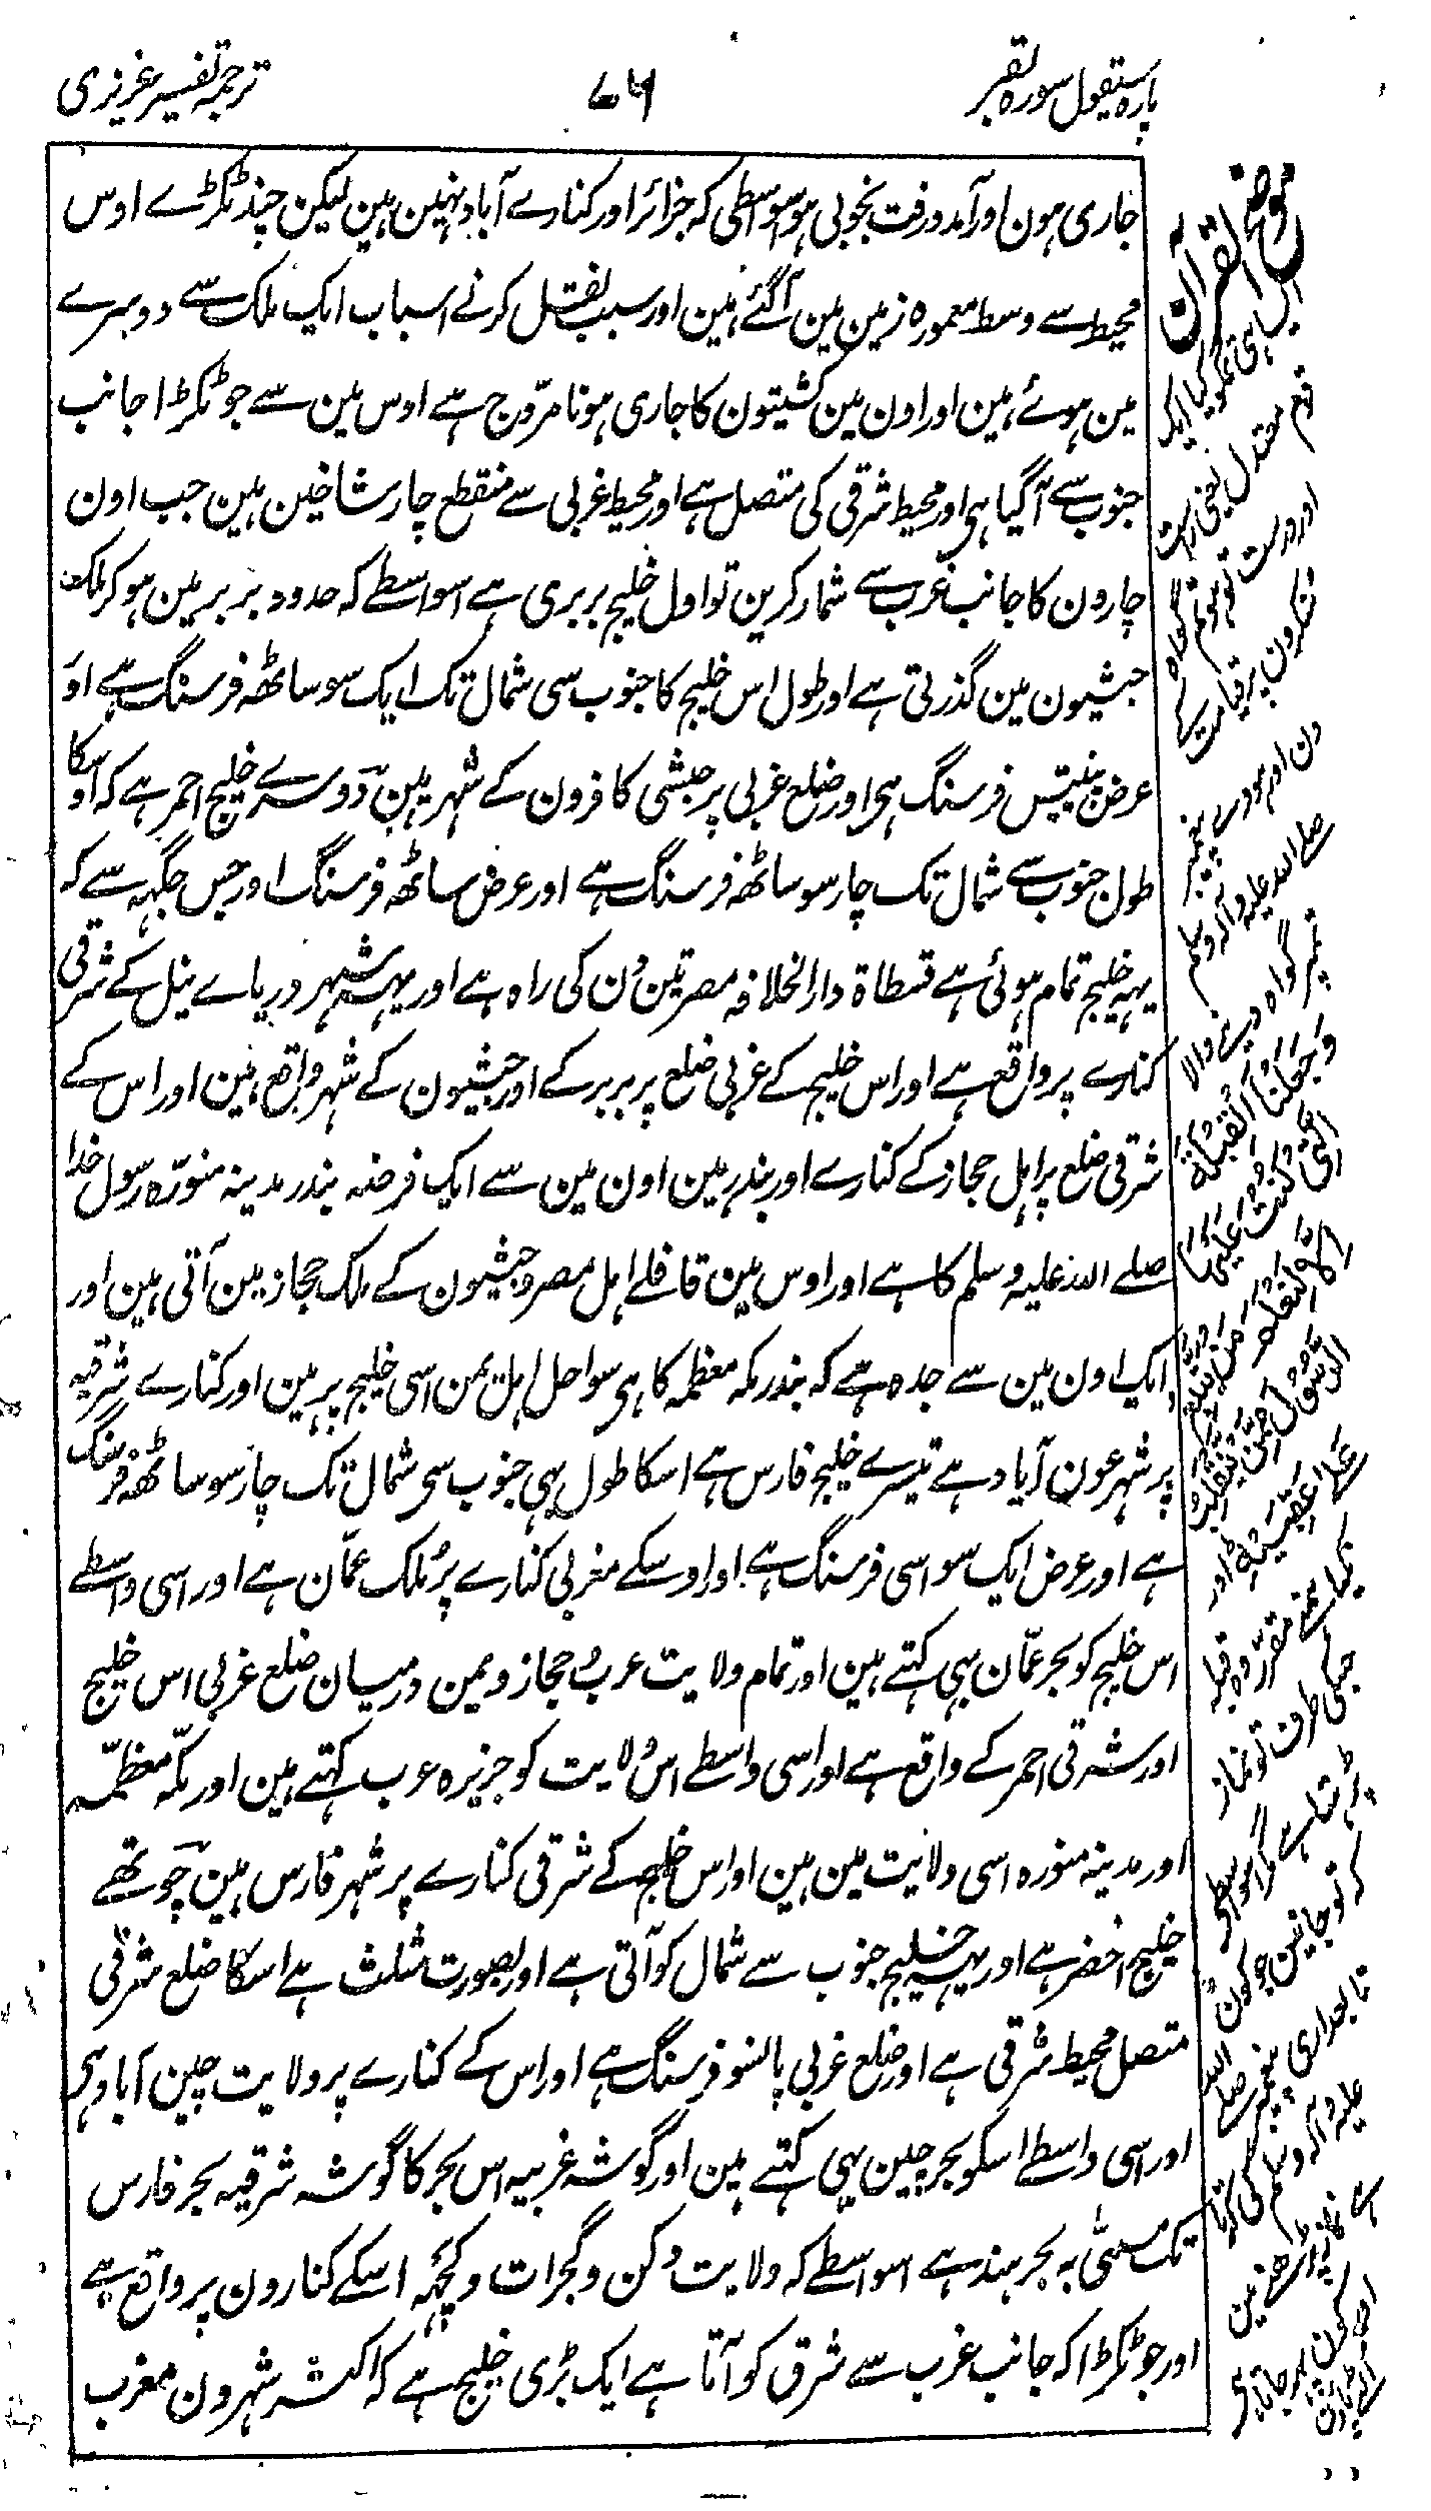 پاره سیقول سوره بقر
۷۶
ترجمه تفسیر عزیزی
جاری ہون اور آمدورفت بخوبی ہو سواسطی کہ جزائر اور کنارے آباد نہین ہین لیکن چند ٹکڑے اوس
محیط سے وسط معموره زمین مین آگئے ہین اور سبب نقل کرنے اسباب ایک ملک سے دوسرے
مین ہوئے ہین اور اون مین کشیتون کا جاری ہونا مروّج ہے اوس مین سے جو ٹکڑا جانب
جنوب سے آگیا ہی اور محیط شرقی کی متصل ہے اور محیط غربی سے منقطع چار شاخین ہین جب اون
چارون کا جانب غرب سے شمار کرین تو اول خلیج بربری ہے اسواسطے کہ حدود بربر مین ہو کر ملک
حبشیون مین گذرتی ہے اور طول اس خلیج کا جنوب سی شمال تک ایک سو ساٹھہ فرسنگ ہے اوَ
عرض پنیتس فرسنگ ہی اور ضلع غربی پر حبشی کافرون کے شہر ہین دَوسرے خلیج احمر ہے کہ اوسکا
طول جنوب سے شمال تک چار سو ساٹھہ فرسنگ ہے اور عرض ساٹھہ فرسنگ اور جس جگہہ سے کہ
یہہ خلیج تمام ہوئی ہے قسطاة دار الخلافہ مصر تین دن کی راه ہے اور یہہ شہر دریاے نیل کے شرقی
کنارے پر واقع ہے اور اس خلیج کے غربی ضلع پر بربر کے اور حبشیون کے شہر واقع ہین اور اس کے
شرقی ضلع پر اہل حجاز کے کنارے اور بندر ہین اون مین سے ایک فرضہ بندر مدینہ منوّره رسول خدا
صلے اللہ علیہ وسلم کا ہے اور اوس مین قافلے اہل مصر و حبشیون کے ملک حجاز مین آتی ہین اور
ایک اون مین سے جده ہے کہ بندر مکہ معظمہ کا ہی سواحل اہل یمن اسی خلیج پر ہین اور کنارے شرقیہ
پر شہر عون آباد ہے تیسرے خلیج فارس ہے اسکا طول بہی جنوب سی شمال تک چار سو ساٹھہ فرسنگ
ہے اور عرض ایک سو اسی فرسنگ ہے اور اوسکے مغربی کنارے پر ملک عمّان ہے اور اسی واسطے
اس خلیج کو بحر عمّان بہی کہتے ہین اور تمام ولایت عرب و حجاز و یمن درمیان ضلع غربی اس خلیج
اور شرقی احمر کے واقع ہے اور اسی واسطے اس ولایت کو جزیره عرب کہتے ہین اور مکّہ معظمّہ
اور مدینہ منوره اسی ولایت مین ہین اور اس خلیج کے شرقی کنارے پر شہر فارس ہین چوتھے
خلیج اخضر ہے اور یہہ خلیج جنوب سے شمال کو آتی ہے اور بصورت مثلث ہے اسکا ضلع شرقی
متصل محیط شرقی ہے اور ضلع غربی پانسو فرسنگ ہے اور اس کے کنارے پر ولایت چین آباد ہی
اور اسی واسطے اسکو بحر چین بہی کہتے ہین اور گوشہ غربیہ اس بحر کا گوشہ شرقیہ بحر فارس
تک مسمّٰی بہ بحر ہند ہے اسواسطے کہ ولایت دکن و گجرات و کچھہ اسکے کنارون پر واقع ہے
اور جو ٹکڑا کہ جانب غرب سے شرق کو آتا ہے ایک بڑی خلیج ہے کہ اکثر شہرون مغرب
موضح القرآن
قوم معتدل یعنی راست
اور درست
دن اور ہووے پیغمبر
صلے اللہ علیہ وآلہ وسلم
تمپر گواه دینے والا
وَجَعَلْنَا الْقِبْلَةَ
الَّتِي كُنْتَ عَلَيْهَا
إِلَّا لِنَعْلَمَ مَنْ يَتَّبِعُ
الرَّسُولَ مِمَّنْ يَنْقَلِبُ
عَلَىٰ عَقِبَيْهِ اور
نہ کیا ہمنے مقرر وه قبلہ
جسکی طرف تو نماز
پڑہتا ہے مگر اسواسطے
کہ تو جانین جو کون
تابعداری پیغمبر صلے اللہ
علیہ وآلہ وسلم کی کرتا